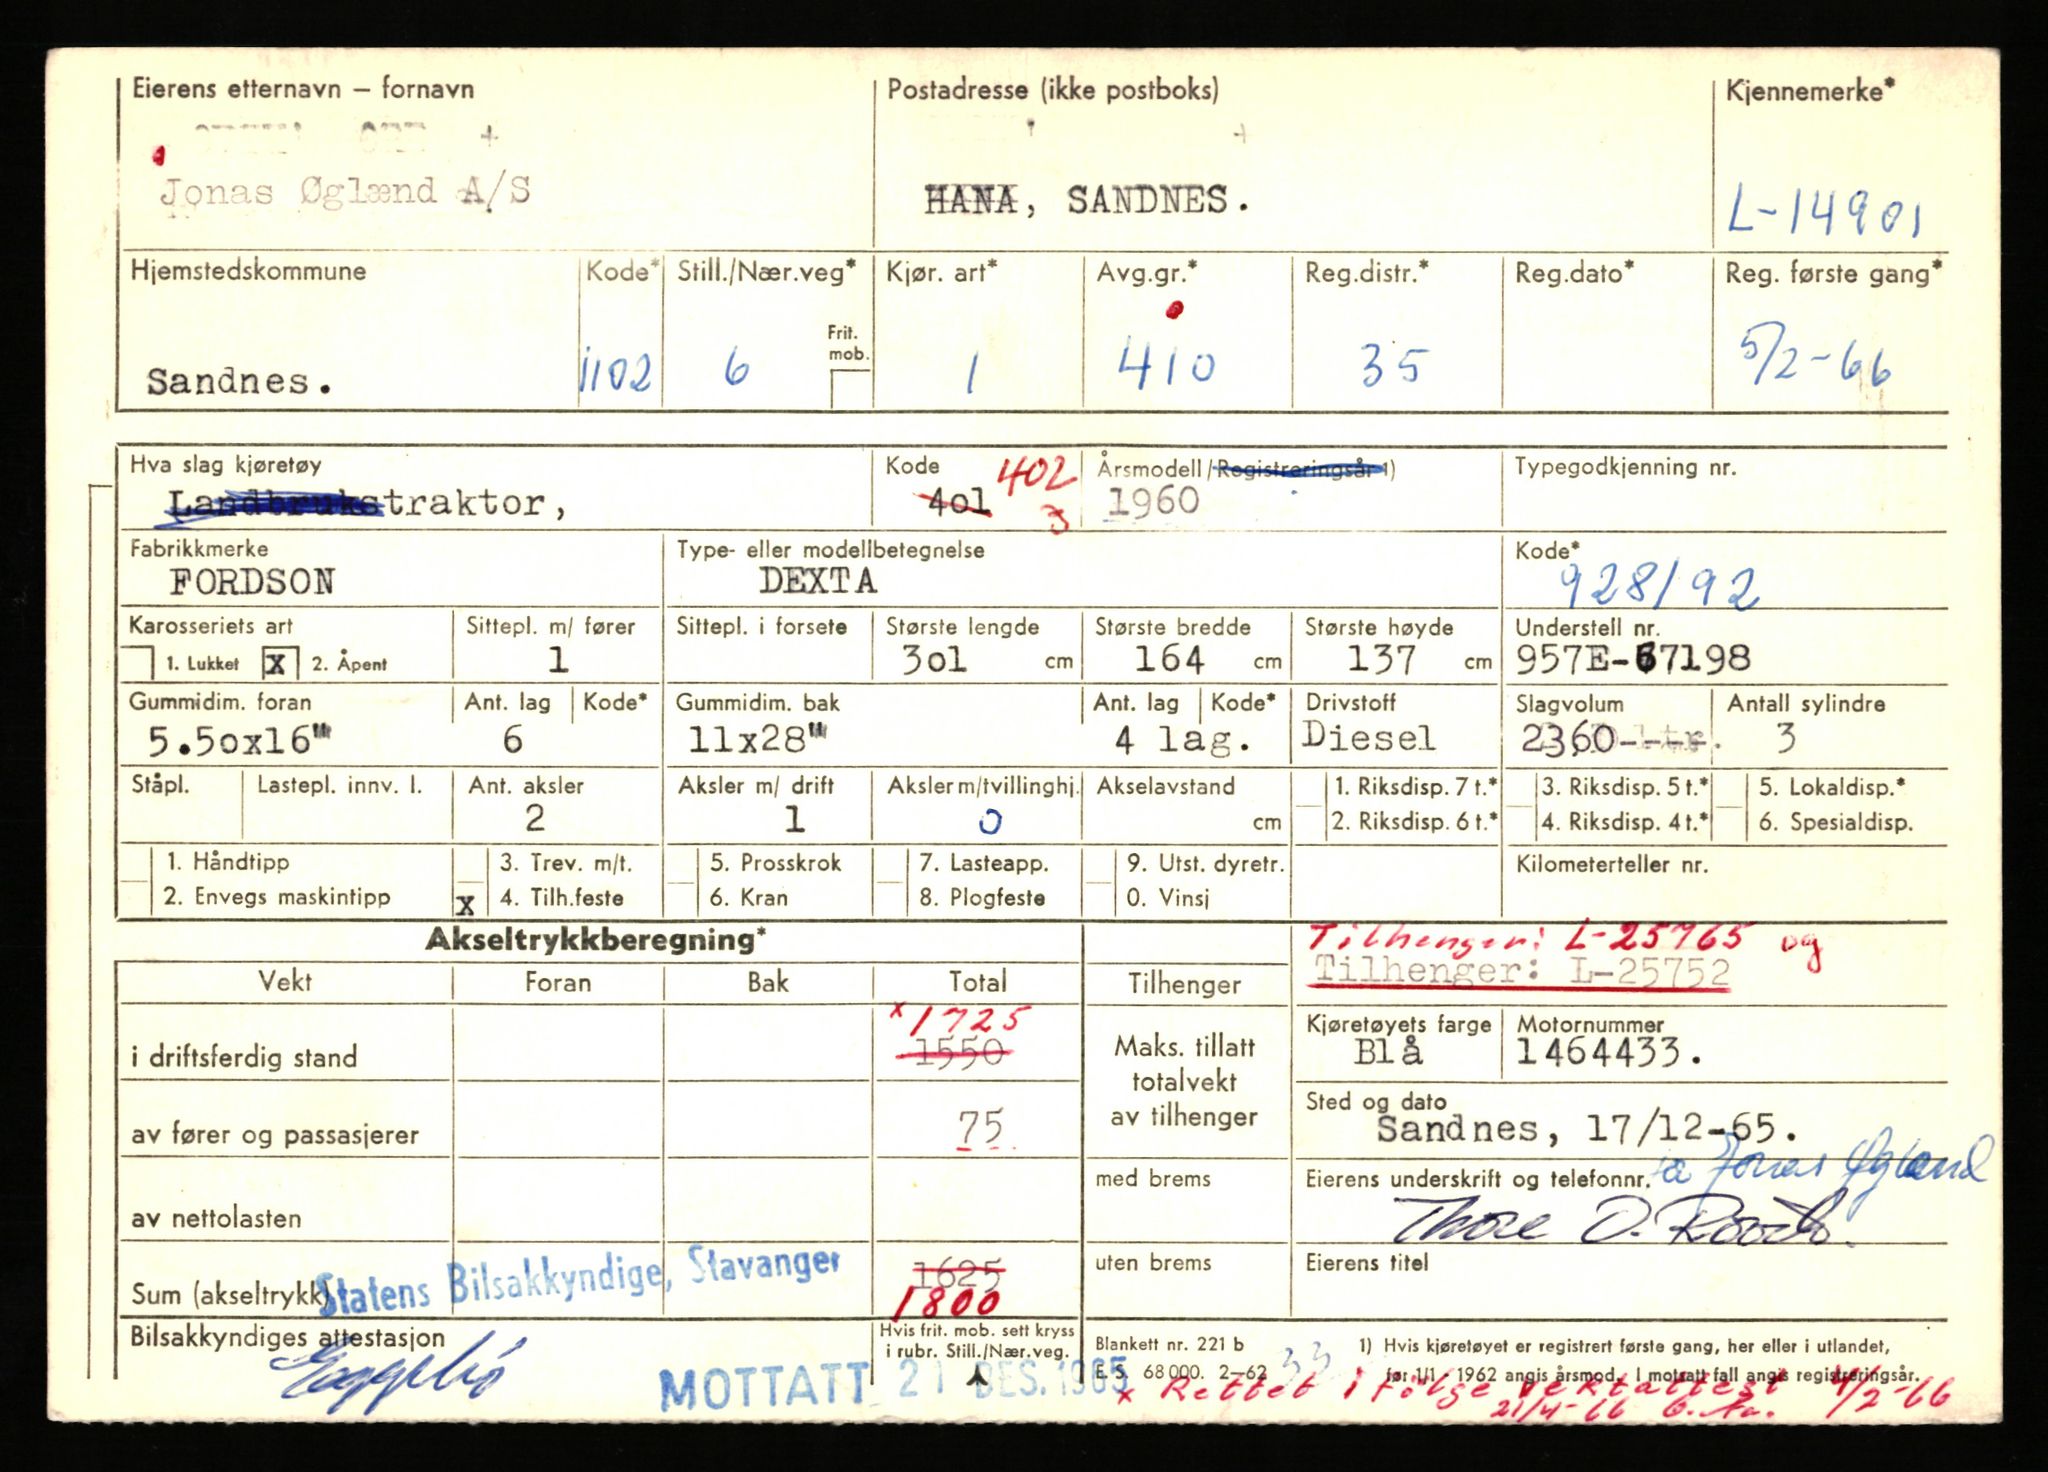 Eierens etternavn – fornavn
Postadresse (ikke postboks)
Kjennemerke*
Jonas Øglænd A/S
HANA, SANDNES.
L-14901
Hjemstedskommune
Kode*
Still./Nær.veg*
Kjør. art*
Avg.gr.*
Reg.distr.*
Reg.dato*
Reg. første gang*
Frit. mob.
Sandnes.
1102
6
1
410
35
5/2-66
Hva slag kjøretøy
Kode
402
Årsmodell/Registreringsår 1)
Typegodkjenning nr.
Landbrukstraktor,
4o1
3
1960
Fabrikkmerke
Type- eller modellbetegnelse
Kode*
FORDSON
DEXTA
928/92
Karosseriets art
Sittepl. m/ fører
Sittepl. i forsete
Største lengde
Største bredde
Største høyde
Understell nr.
1. Lukket
X
2. Åpent
1
3o1 cm
164 cm
137 cm
957E-67198
Gummidim. foran
Ant. lag
Kode*
Gummidim. bak
Ant. lag
Kode*
Drivstoff
Slagvolum
Antall sylindre
5.50x16"
6
11x28"
4 lag.
Diesel
2360----.
3
Ståpl.
Lastepl. innv. l.
Ant. aksler
Aksler m/ drift
Aksler m/tvillinghj.
Akselavstand
1. Riksdisp. 7 t.*
3. Riksdisp. 5 t.*
5. Lokaldisp.*
2
1
0
cm
2. Riksdisp. 6 t.*
4. Riksdisp. 4 t.*
6. Spesialdisp.
1. Håndtipp
3. Trev. m/t.
5. Prosskrok
7. Lasteapp.
9. Utst. dyretr.
Kilometerteller nr.
2. Envegs maskintipp
x
4. Tilh.feste
6. Kran
8. Plogfeste
0. Vinsj
Akseltrykkberegning*
Tilhenger: L-25765 og
Tilhenger: L-25752
Vekt
Foran
Bak
Total
Tilhenger
x 1725
i driftsferdig stand
1550
Maks. tillatt
totalvekt
av tilhenger
Kjøretøyets farge
Motornummer
Blå
1464433.
av fører og passasjerer
75
Sted og dato
Sandnes, 17/12-65.
Jonas Øglænd
av nettolasten
med brems
Eierens underskrift og telefonnr.
Thore O.
Sum (akseltrykk)
Statens Bilsakkyndige, Stavanger
1625
1800
uten brems
Eierens titel
Bilsakkyndiges attestasjon
Eggebø
Hvis frit. mob. sett kryss
i rubr. Still./Nær.veg.
MOTTATT 21 DES. 1965
Blankett nr. 221 b
E. S. 68 000. 2–62
33
1) Hvis kjøretøyet er registrert første gang, her eller i utlandet,
før 1/1 1962 angis årsmod. I motsatt fall angis registreringsår.
x Rettet i følge vektattest 4/2-66
21/4-66